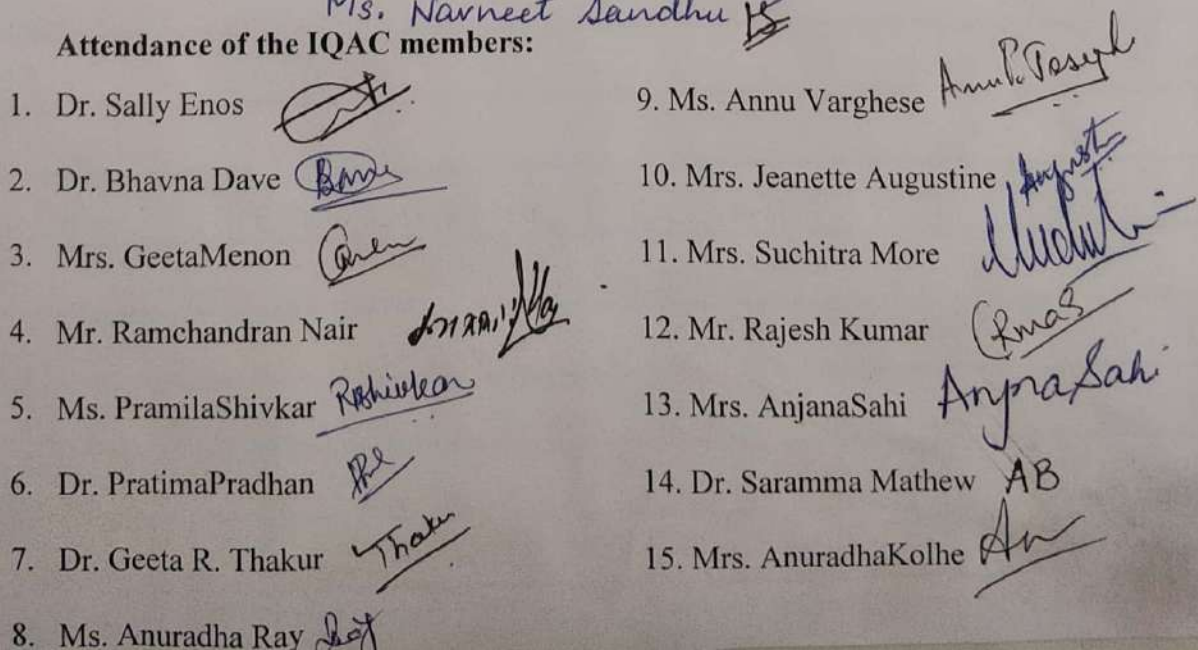 Ms. Navneet Sandhu
Attendance of the IQAC members:
1. Dr. Sally Enos
2. Dr. Bhavna Dave
3. Mrs. GeetaMenon
4. Mr. Ramchandran Nair
5. Ms. PramilaShivkar
6. Dr. PratimaPradhan
7. Dr. Geeta R. Thakur Thakur
8. Ms. Anuradha Ray
9. Ms. Annu Varghese
10. Mrs. Jeanette Augustine
11. Mrs. Suchitra More
12. Mr. Rajesh Kumar
13. Mrs. AnjanaSahi
14. Dr. Saramma Mathew AB
15. Mrs. AnuradhaKolhe